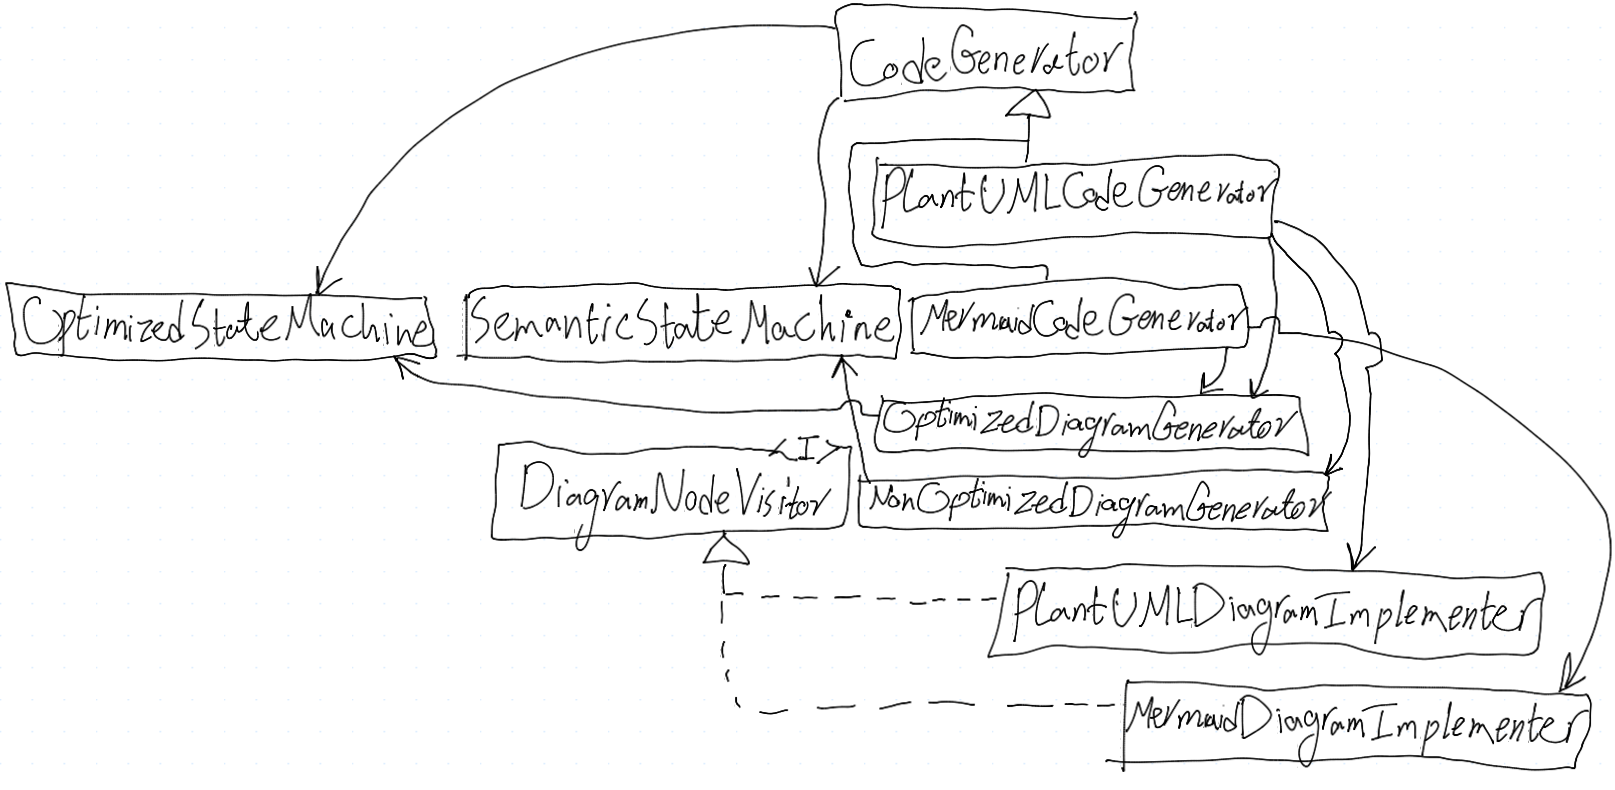 CodeGenerator
PlantUMLCodeGenerator
OptimizedStateMachine
SemanticStateMachine
MermaidCodeGenerator
OptimizedDiagramGenerator
<I>
DiagramNodeVisitor
NonOptimizedDiagramGenerator
PlantUMLDiagramImplementer
MermaidDiagramImplementer